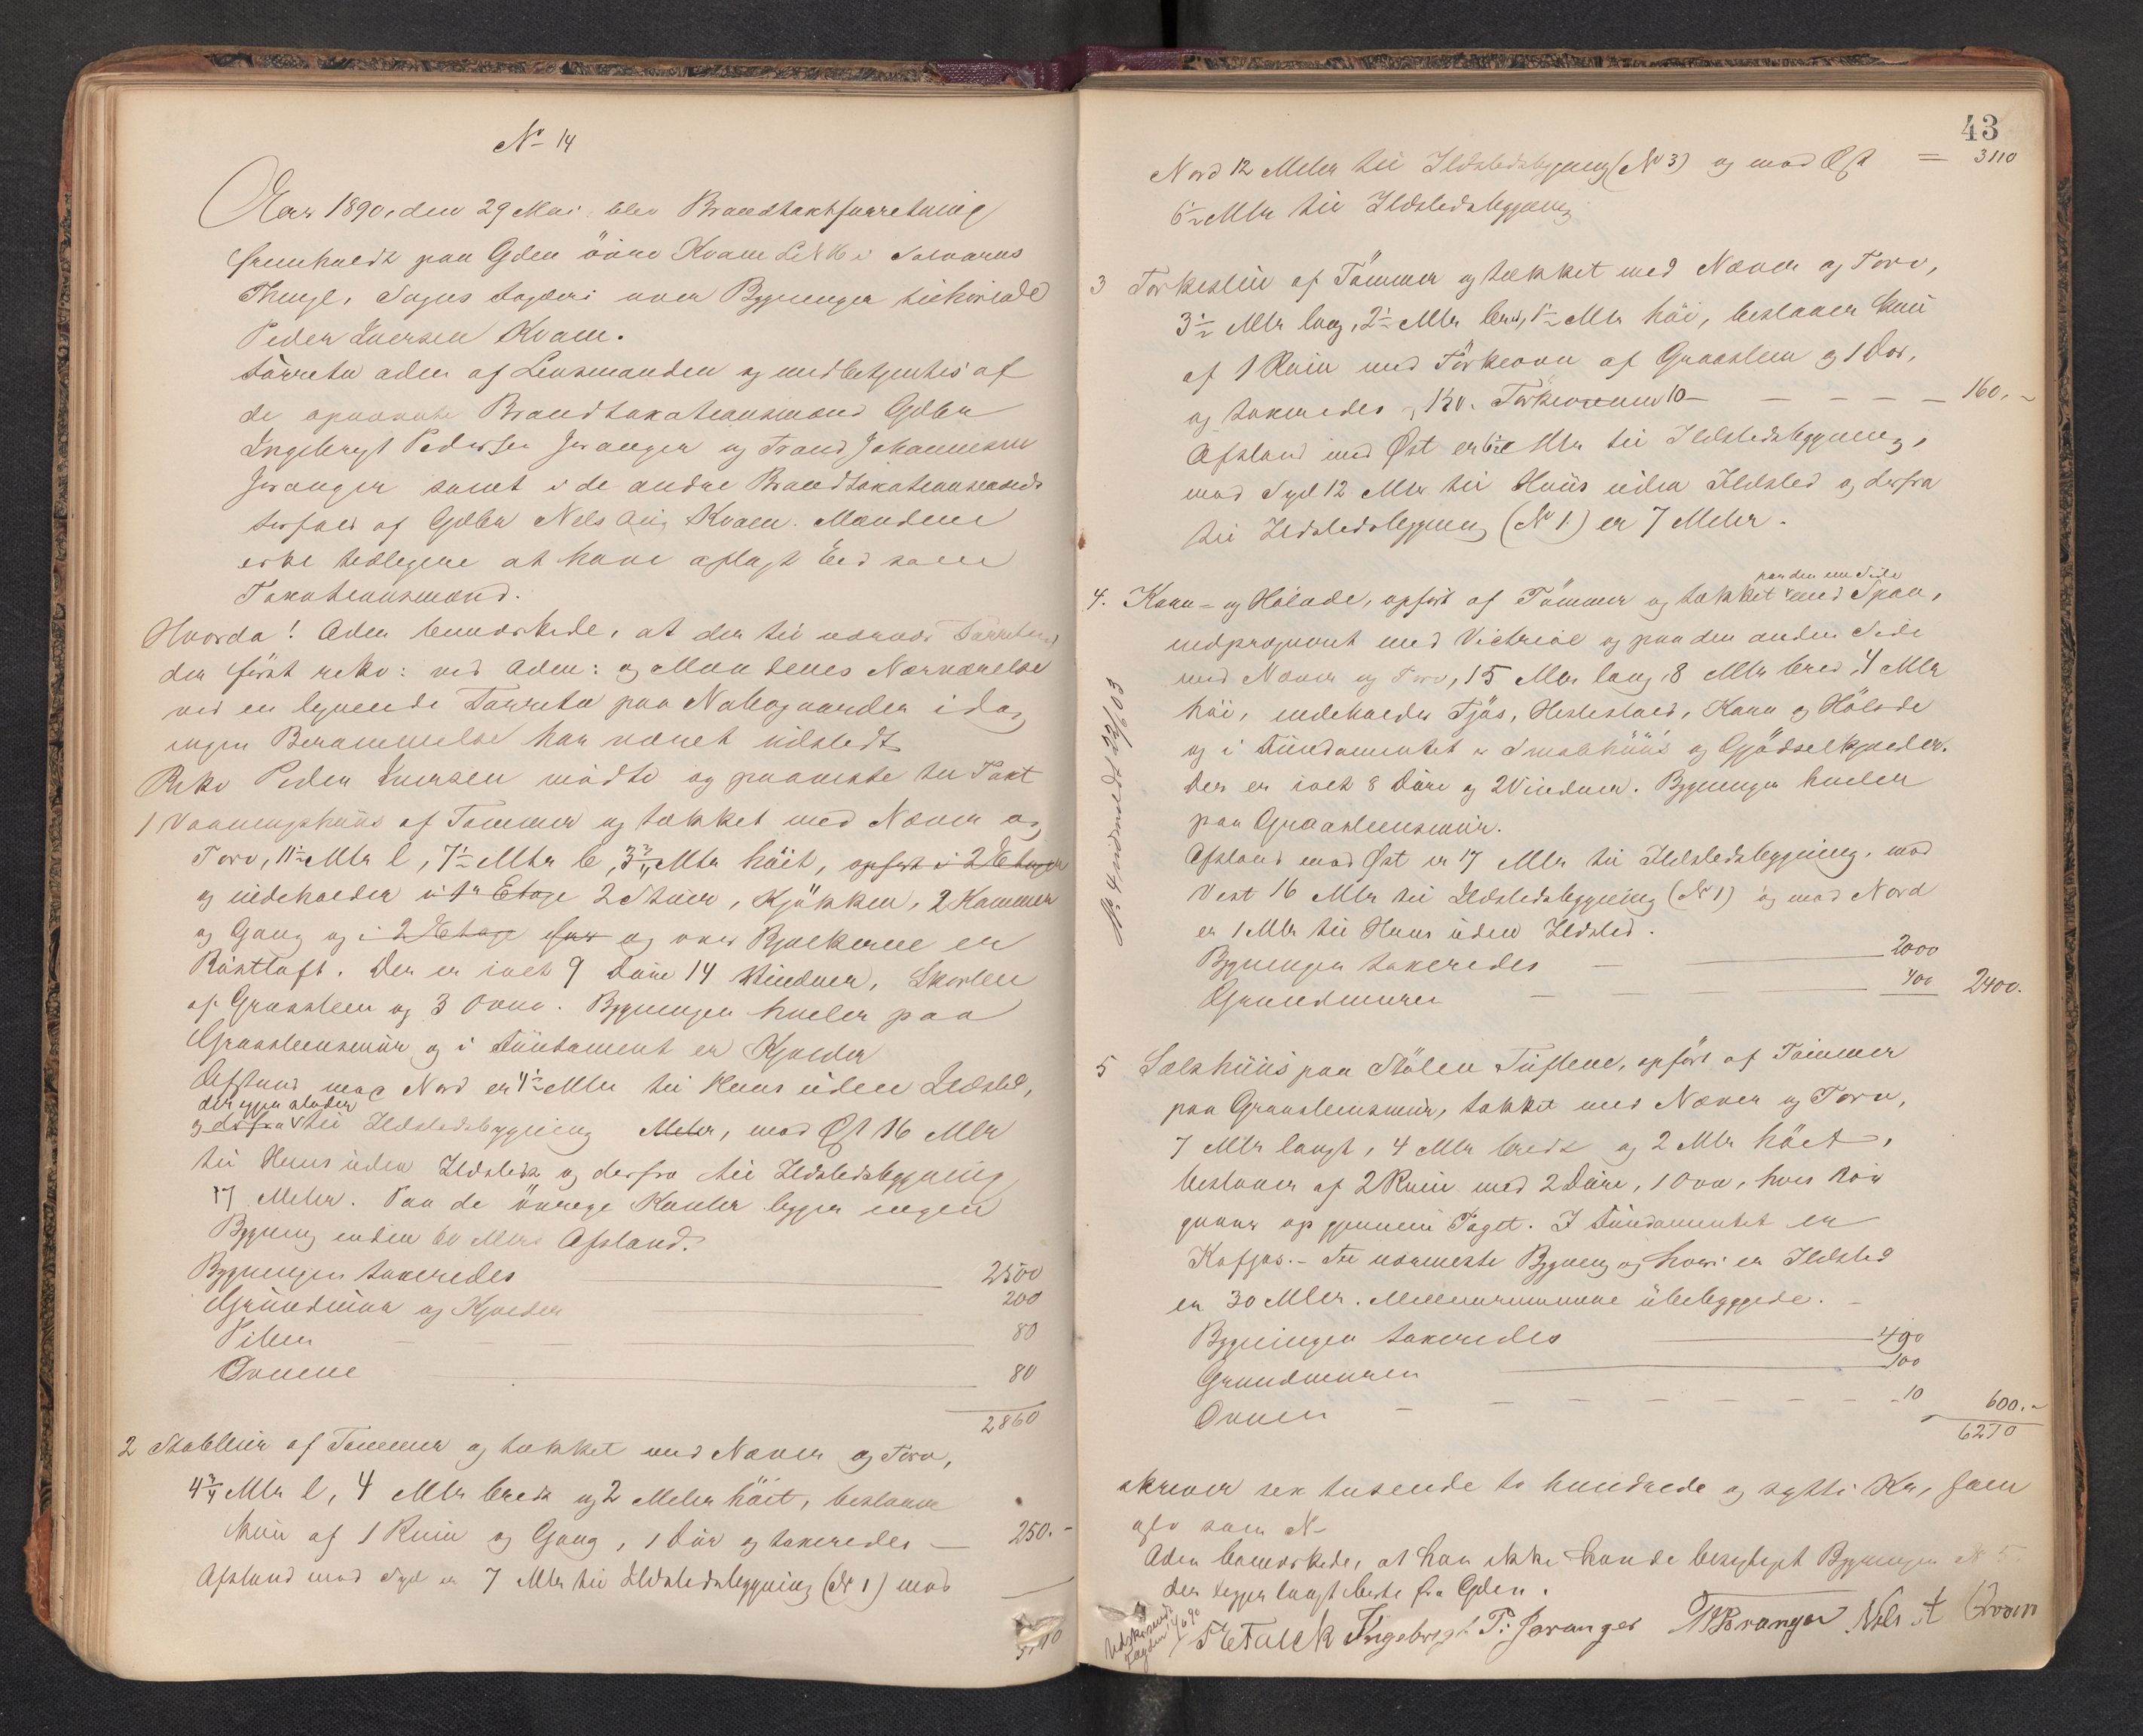 No 14
Aar 1890, den 29 Mai blev Brandtaxtforretning
fremholdt paa Gden øvre Kvam LNo 16 i Solvorns
Thingl. Sogns Fogderi over Bygninger tilhørende
Peder Iversen Kvam.
Forretn aden af Lensmanden og medbetjentes af
de opnævnte Brandtaxationsmænd Gdbr
Ingebrigt Pedersen Joranger og Trond Johannesen
Joranger samt i de andre Brandtaxationsmænds
forfald af Gdbr Nels Kvam. Mændene
erkl tidligere at have aflagt Eed som
Taxationsmænd.
Hvorda! Aden bemærkede, at der til nærvær Forretning
der først rekv: ved Aden: og Mændenes Nærværelse
ved en lignende Forretn paa Nabogaarden idag
ingen Berammelse har været udstedt
Rekv Peder Iversen mødte og paaviste til Taxt
1 Vaaningshuus af Tømmer og tækket med Næver og
Torv, 11½ Mtr l, 7½ Mtr b, 3¾ Mtr høit, opført i 2 Etager
og indeholder i 1ste Etage 2 Stuer, Kjøkken, 2 Kammer
og Gang og i 2 Etage og over Bjelkerne en
Røstloft. Der er ialt 9 Døre 14 Vinduer, Skorsten
af Graasteen og 3 Ovne. Bygningen hviler paa
Graasteensmuur og i Fundament er Kjelder
Afstand mod Nord er 4½ Mtr til Huus uden Ildsted,
der igjen støder
og derfra til Ildstedsbygning Meter, mod Øst 16 Mtr
til Huus uden Ildsted og derfra til Ildstedsbygning
17 Meter. Paa de øvrige Kanter ligger ingen
Bygning inden 60 Meters Afstand.
Bygningen taxeredes 2500
Grundmur og Kjelder 200
Piben 80
Ovnene 80
2860
2 Stabbur af Tømmer og tækket med Næver og Torv,
4¾ Mtr l, 4 Mtr bredt og 2 Meter høit, bestaaer
kun af 1 Rum og Gang, 1 Dør og taxeredes 250.-
Afstand mod Syd er 7 Mtr til Ildstedsbygning (No 1) mod
3110
43
Nord 12 Meter til Ildstedsbygning (No 3) og mod Øst = 3110
6½ Mtr til Ildstedsbygning
3 Tørkestue af Tømmer og tækket med Næver og Torv,
3½ Mtr lang, 2½ Mtr bred, 1½ Mtr høi, bestaaer kun
af 1 Rum med Tørkeovn af Graasteen og 1 Dør,
og taxeredes 150. Tørkeovnen 10 160.-
Afstand mod Øst er 6½ Mtr til Ildstedsbygning,
mod Syd 12 Mtr til Huus uden Ildsted og derfra
til Ildstedsbygning (No 1) er 7 Meter.
paa den ene Side
4. Korn- og Hølade, opført af Tømmer og tækket med Spaan,
indprægneret med Victriol og paa den anden Side
med Næver og Torv, 15 Mtr lang, 8 Mtr bred, 4 Mtr
høi, indeholder Fjøs, Hestestald, Korn og Hølade
og i Fundamentet er Smalehuus og Gjødselkjelder.
Der er ialt 8 Døre og 2 Vinduer. Bygningen hviler
paa Graasteensmuur.
Afstand mod Øst er 17 Mtr til Ildstedsbygning, mod
Vest 16 Mtr til Ildstedsbygning (No 1) og mod Nord
er 1 Mtr til Huus uden Ildsted.
Bygningen taxeredes 2000
Grundmuren 400 2400.
No 4 udmeldt 22/6 03
5 Selshuus paa Stølen Tuftene, opført af Tømmer
paa Graasteensmuur, tækket med Næver og Torv,
7 Mtr langt, 4 Mtr bredt og 2 Mtr høit,
bestaaer af 2 Rum med 2 Døre, 1 Ovn, hvis Rør
gaaer op gjennem Taget. I Fundamentet er
Kofjøs. - Til nærmeste Bygning og hvori er Ildsted
er 30 Mtr. Mellemrummene ubebyggede. -
Bygningen taxeredes 490
Grundmuren 100
Ovnen 10 600.-
6270
skriver sex tusende to hundrede og sytti Kr, som
oplv som N-
Aden bemærkede, at han ikke kunde besigtiget Bygningen No 5
der ligger langt borte fra Gden.
Udskrevet
Ingebrigt P: Joranger T Joranger Nils A Kvam